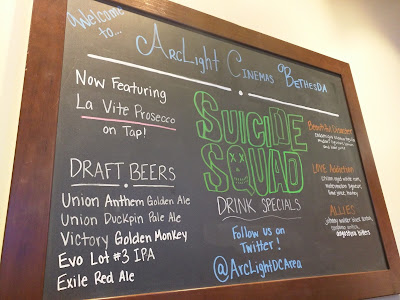 Welcome
to...
ArcLight Cinemas Bethesda
Now Featuring
La Vite Prosecco
on Tap!
DRAFT BEERS
Union Anthem Golden Ale
Union Duckpin Pale Ale
Victory Golden Monkey
Evo Lot #3 IPA
Exile Red Ale
SUICIDE
SQUAD
DRINK SPECIALS
Follow us on
Twitter!
@ArcLightDCArea
Beautiful Disaster
LOVE Addiction
ALLIES
angostura bitters